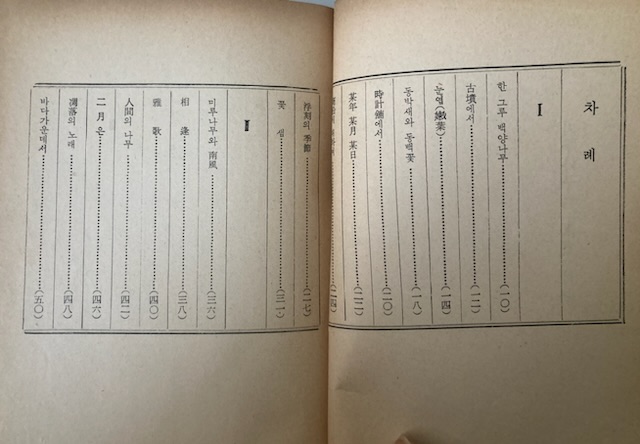 차례
I
한 그루 백양나무 (一〇)
古墳에서 (一二)
눈엽(嫩葉) (一四)
동박새와 동백꽃 (一八)
時計鋪에서 (二〇)
某年 某月 某日 (二二)
(二四)
浮刻의 季節 (二七)
꽃샘 (三一)
II
미루나무와 南風 (三六)
相逢 (三八)
雅歌 (四〇)
人間의 나무 (四二)
二月은 (四六)
凋落의 노래 (四八)
바다가운데서 (五〇)